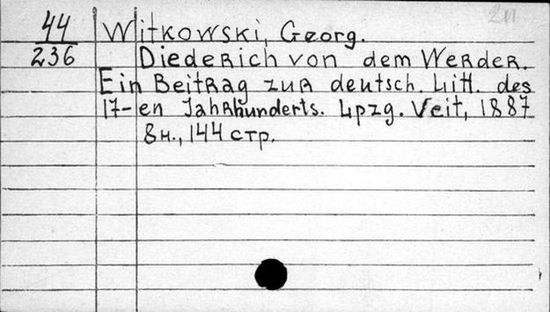 44
236
Witkowski, Georg.
Diederich von dem Werder.
Ein Beitrag zur deutsch. Litt. des
17-en Jahrhunderts. Lpzg. Veit, 1887
8н., 144 стр.